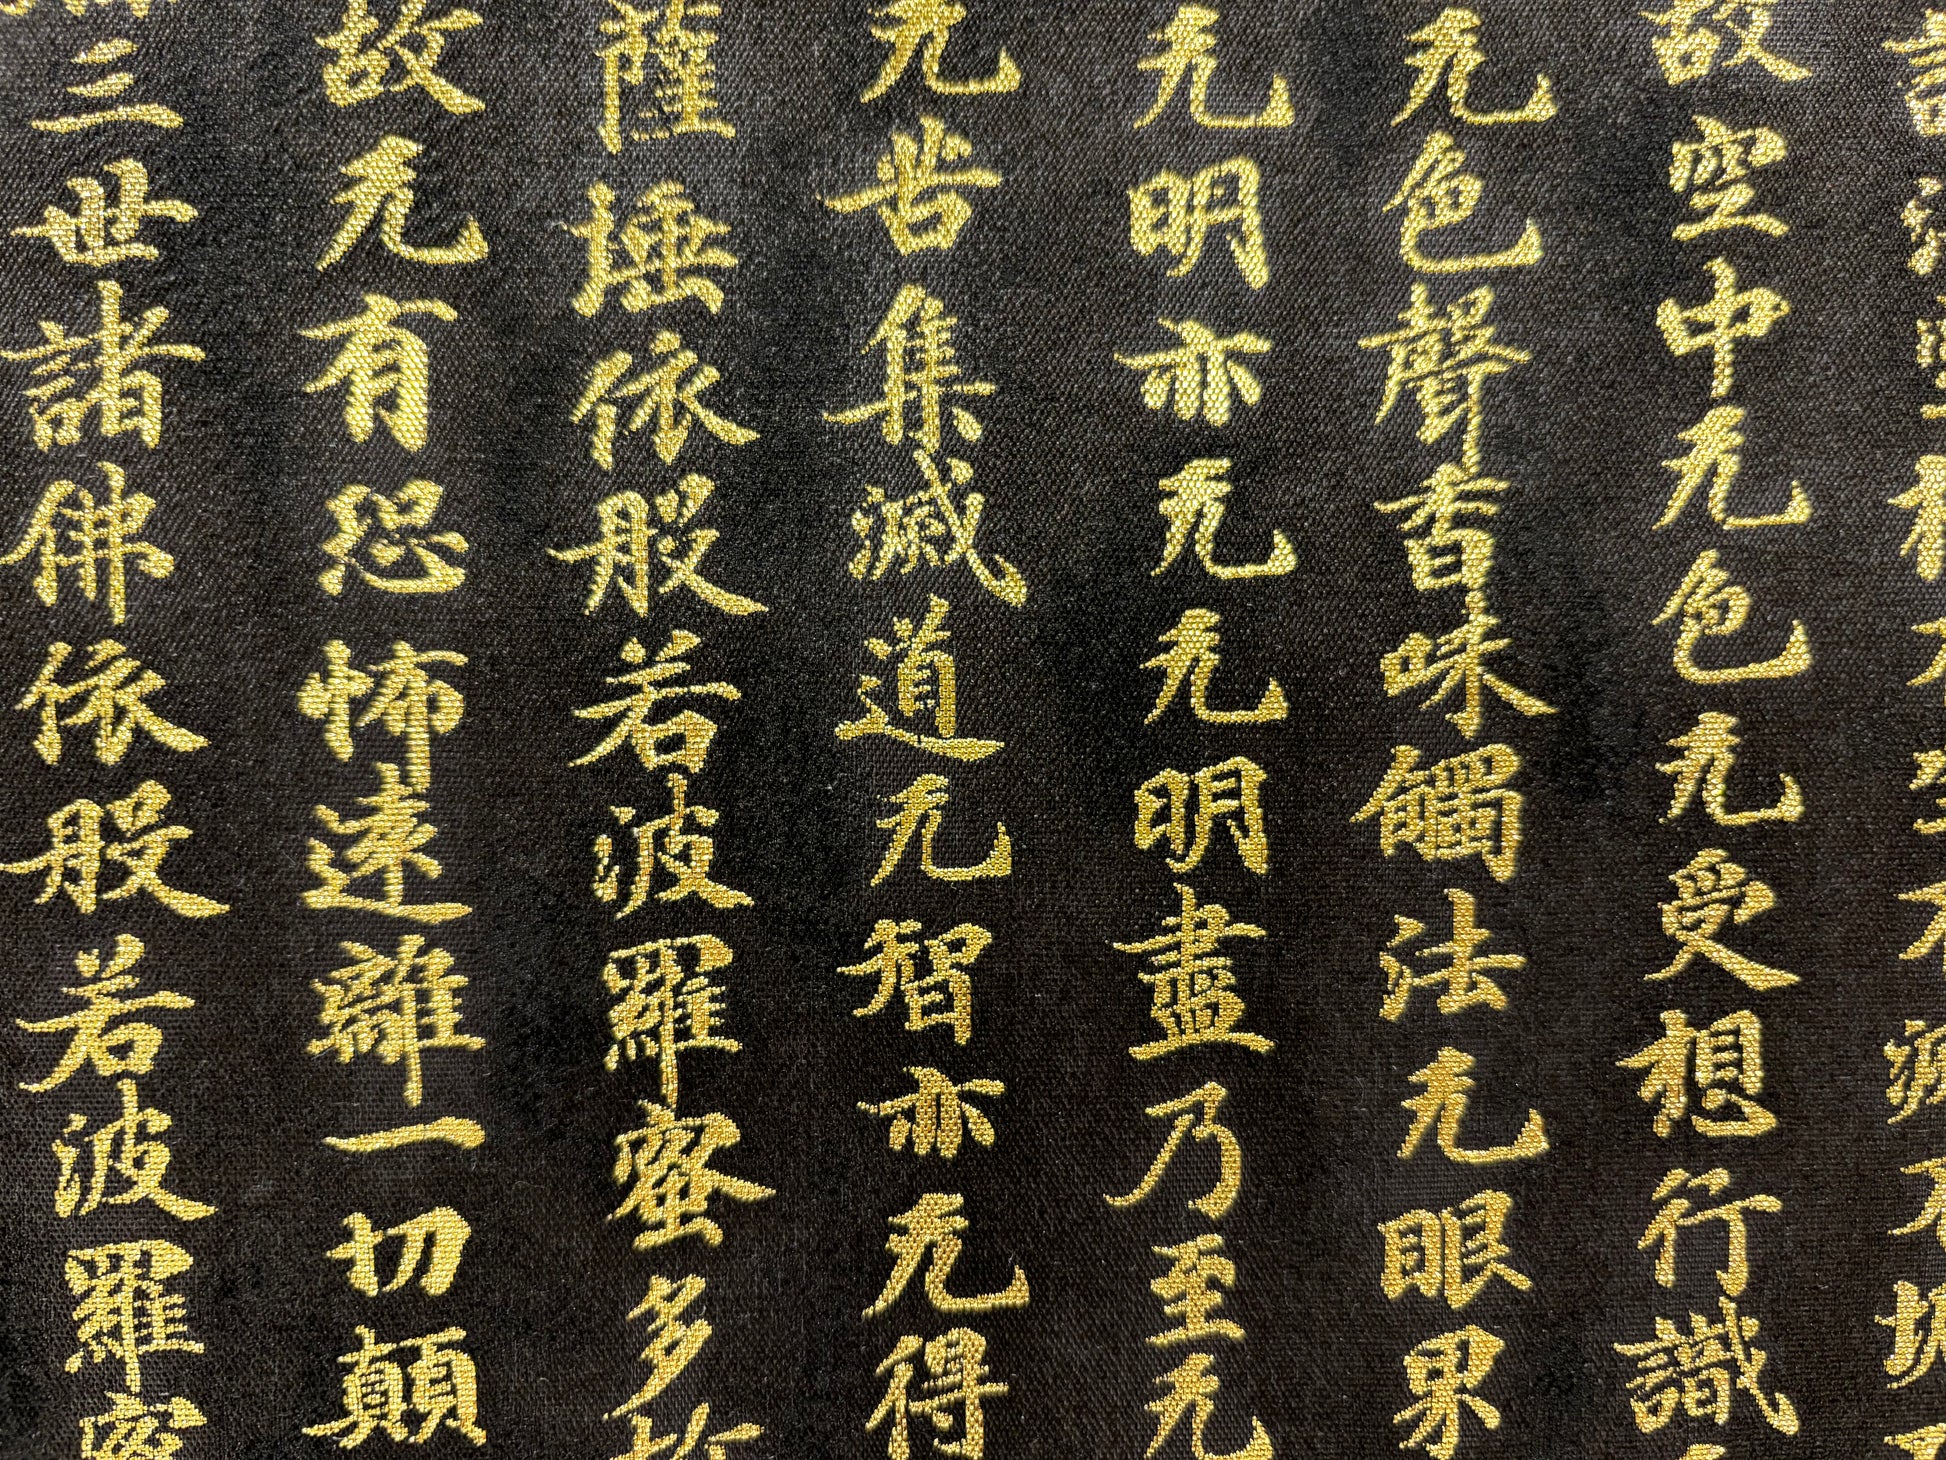 諸法空相不生不滅不垢不
故空中无色无受想行識
无色聲香味觸法无眼界
无明亦无无明盡乃至无
无苦集滅道无智亦无得
薩埵依般若波羅蜜多故
故无有恐怖遠離一切顛
三世諸佛依般若波羅蜜